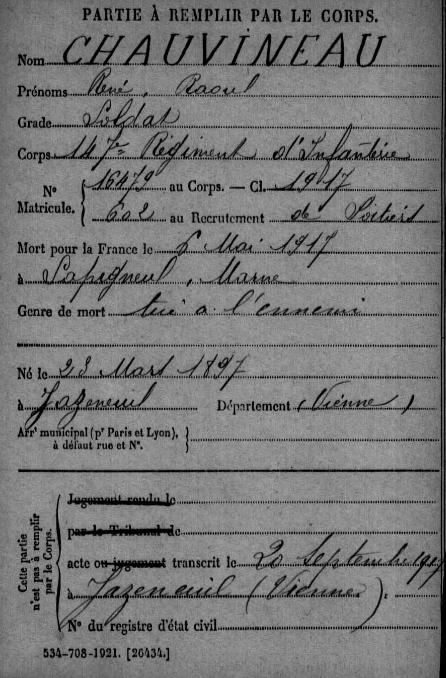 PARTIE À REMPLIR PAR LE CORPS.
Nom CHAUVINEAU
Prénoms René, Raoul
Grade Soldat
Corps 147e Régiment d'Infanterie
N° Matricule. { 16479 au Corps. — Cl. 1917
602 au Recrutement de Poitiers
Mort pour la France le 6 Mai 1917
à Sapigneul, Marne
Genre de mort tué à l'ennemi
Né le 23 Mars 1897
à Jazeneuil Département (Vienne)
Arrt municipal (pr Paris et Lyon), à défaut rue et N°. }
Cette partie n'est pas à remplir par le Corps.
Jugement rendu le
par le Tribunal de
acte ou jugement transcrit le 20 Septembre 1917
à Jazeneuil (Vienne).
N° du registre d'état civil
534-708-1921. [26434.]